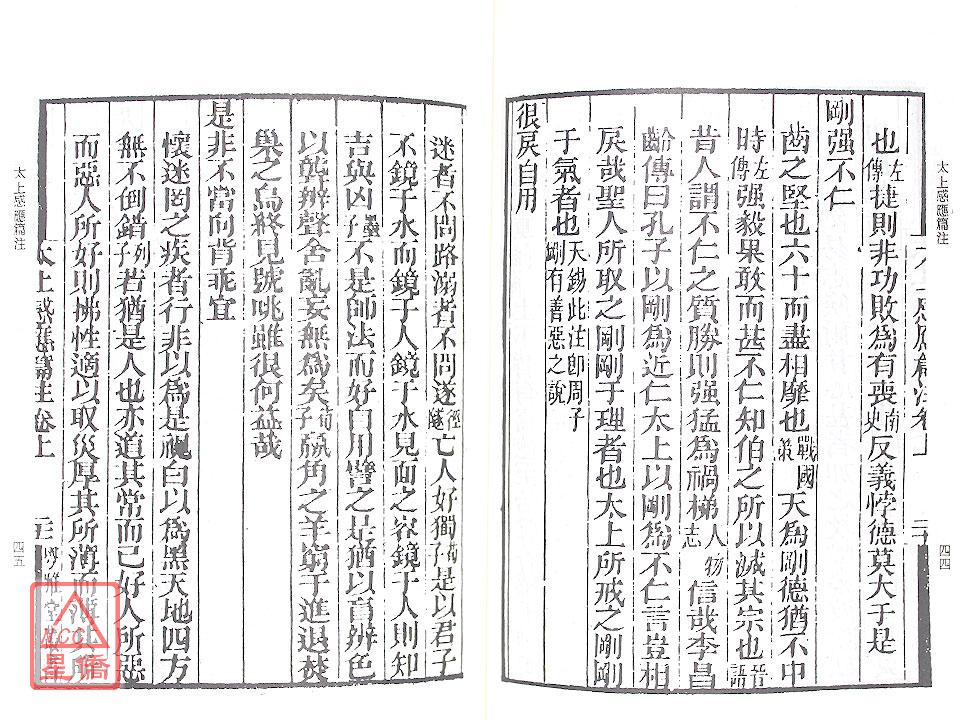 太上感應篇注
四四
也左傳捷則非功敗爲有喪南史反義悖德莫大于是
剛强不仁
齒之堅也六十而盡相靡也戰國策天爲剛德猶不中
時左傳强毅果敢而甚不仁知伯之所以滅其宗也晉語
昔人謂不仁之質勝則强猛爲禍梯人物志信哉李昌
齡傳曰孔子以剛爲近仁太上以剛爲不仁言豈相
戾哉聖人所取之剛剛于理者也太上所戒之剛剛
于氣者也天錫此注卽周子剛有善惡之說
很戾自用
迷者不問路溺者不問遂徑隧亡人好獨荀子是以君子
不鏡于水而鏡于人鏡于水見面之容鏡于人則知
吉與凶墨子不是師法而好自用譬之是猶以盲辨色
以聾辨聲舍亂妄無爲矣荀子羸角之羊窮于進退焚
巢之鳥終見號咷雖很何益哉
是非不當向背乖宜
懷迷罔之疾者行非以爲是視白以爲黑天地四方
無不倒錯列子若猶是人也亦道其常而已好人所惡
而惡人所好則拂性適以取災厚其所薄而薄其所
太上感應篇注卷上
太上感應篇注
四五
星僑